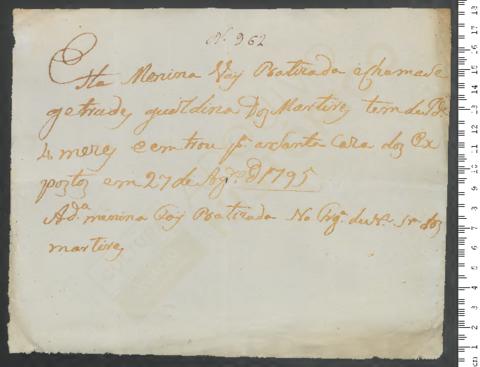 N.º 962
Esta Menina Vay Batizada e chamase
getrudes guoldina Dos Martires tem de
4 mezes e emtrou p.ª a Santa Caza dos Ex
postos em 27 de Ag.to D 1795
A d.ª menina Foy Batizada Na de N. Sr.ª dos
martires